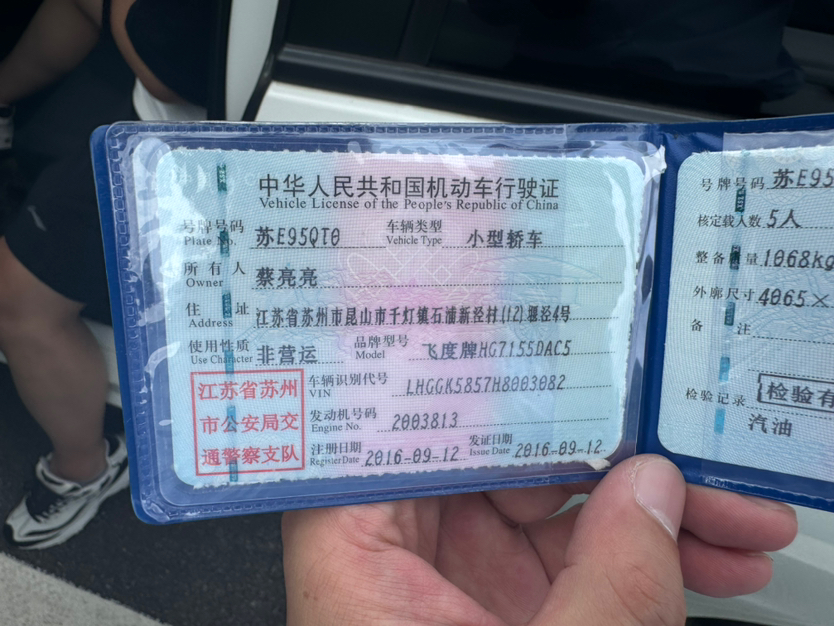 中华人民共和国机动车行驶证
Vehicle License of the People's Republic of China
号牌号码 苏E95QT0 车辆类型 小型轿车
Plate No. Vehicle Type
所有人 蔡亮亮
Owner
住址 江苏省苏州市昆山市千灯镇石浦新泾村(12)堰泾4号
Address
使用性质 非营运 品牌型号 飞度牌HG7155DAC5
Use Character Model
江苏省苏州
市公安局交
通警察支队
车辆识别代号 LHGGK5857H8003082
VIN
发动机号码 2003813
Engine No.
注册日期 2016-09-12 发证日期 2016-09-12
Register Date Issue Date
号牌号码 苏E95
核定载人数 5人
整备质量 1068kg
外廓尺寸 4065×
备注
检验记录 检验有
汽油